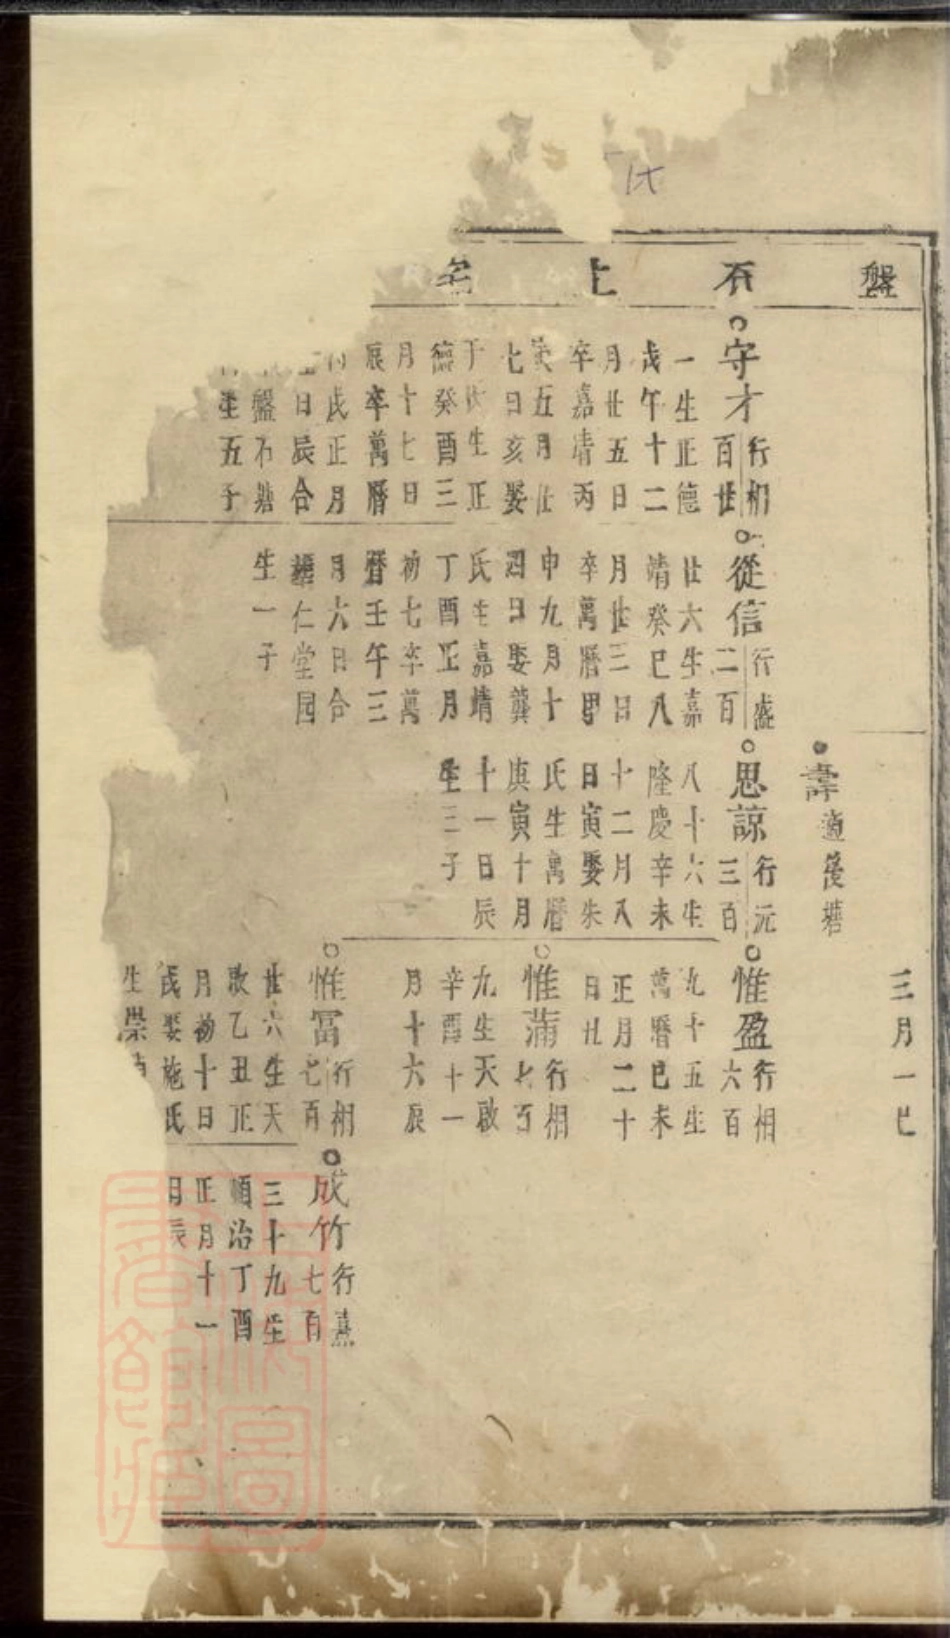 盤石上名
三月一巳
壽適後塘
守才行相
百廿
一生正德
戊午十二
月廿五日
卒嘉靖丙
寅五月廿
七日亥娶
于氏生正
德癸酉三
月十七日
辰卒萬曆
氏正月
日辰合
盤石塘
生五子
從信行盛
二百
廿六生嘉
靖癸巳八
月廿三日
卒萬曆甲
申九月十
四日娶龔
氏生嘉靖
丁酉正月
初七卒萬
曆壬午三
月六日合
仁堂園
生一子
思諒行元
三百
八十六生
隆慶辛未
十二月八
日寅娶朱
氏生萬曆
庚寅十月
十一日辰
生三子
惟盈行相
六百
九十五生
萬曆己未
正月二十
日丑
惟蒲行相
七百
九生天啟
辛酉十一
月十六辰
惟冨行相
七百
廿六生天
啟乙丑正
月初十日
戌娶施氏
生崇
成竹行嘉
七百
三十九生
順治丁酉
正月十一
日辰